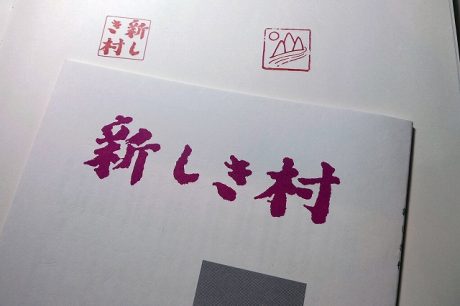 新しき村
新しき村